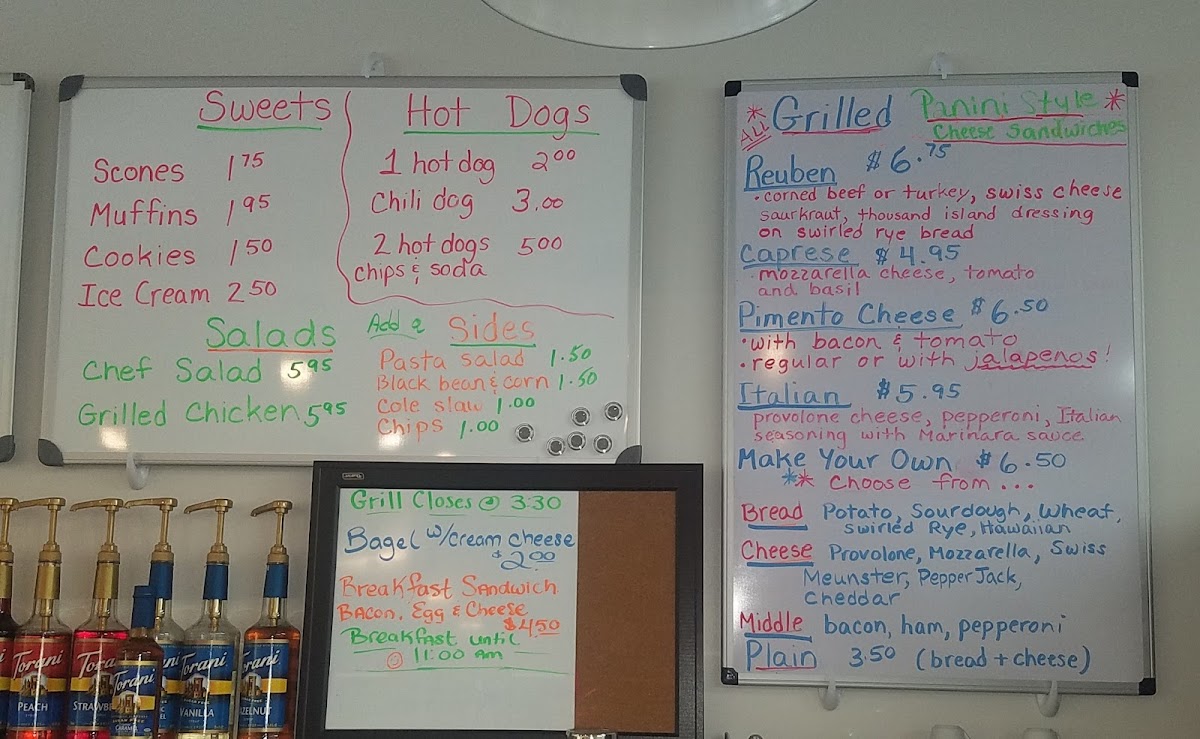 Sweets
Scones 1 75
Muffins 1 95
Cookies 1 50
Ice Cream 2 50
Hot Dogs
1 hot dog 2 00
Chili dog 3.00
2 hot dogs 5 00
chips & soda
Salads
Chef Salad 5 95
Grilled Chicken 5 95
Add a Sides
Pasta salad 1.50
Black bean & corn 1.50
Cole slaw 1.00
Chips 1.00
Grill Closes @ 3:30
Bagel w/cream cheese
$2.00
Breakfast Sandwich
Bacon, Egg & Cheese
$4.50
Breakfast until
11:00 am
* ALL Grilled Panini Style *
Cheese Sandwiches
Reuben $6.75
• corned beef or turkey, swiss cheese
saurkraut, thousand island dressing
on swirled rye bread
Caprese $4.95
- mozzarella cheese, tomato
and basil
Pimento Cheese $6.50
• with bacon & tomato
• regular or with jalapenos!
Italian $5.95
provolone cheese, pepperoni, Italian
seasoning with Marinara sauce
Make Your Own $6.50
** Choose from ...
Bread Potato, Sourdough, Wheat,
Swirled Rye, Hawaiian
Cheese Provolone, Mozzarella, Swiss
Meunster, Pepper Jack,
Cheddar
Middle bacon, ham, pepperoni
Plain 3.50 (bread + cheese)
Torani
PEACH
Torani
Torani
CARAMEL
Torani
VANILLA